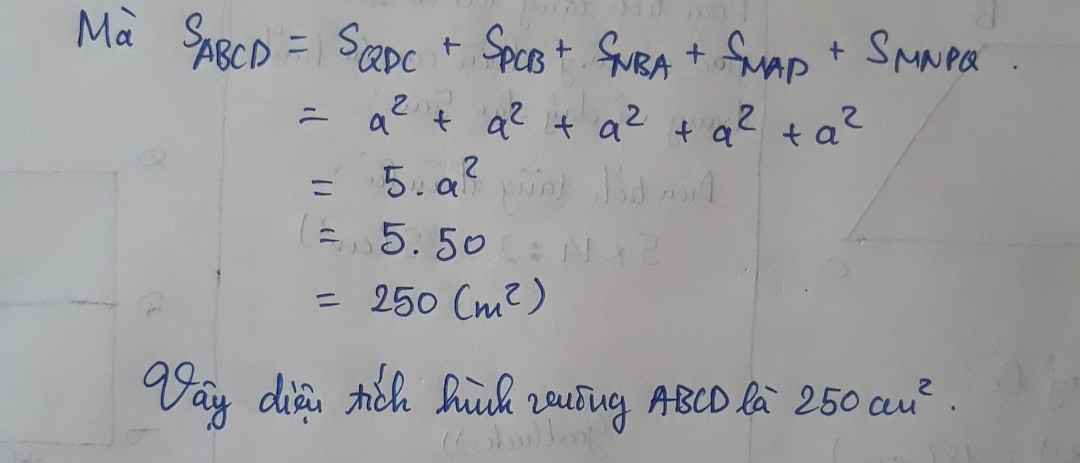 Mà S_ABCD = S_QDC + S_PCB + S_NBA + S_MAD + S_MNPQ .
= a² + a² + a² + a² + a²
= 5. a²
= 5. 50
= 250 (m²)
Vậy diện tích hình vuông ABCD là 250 cm².